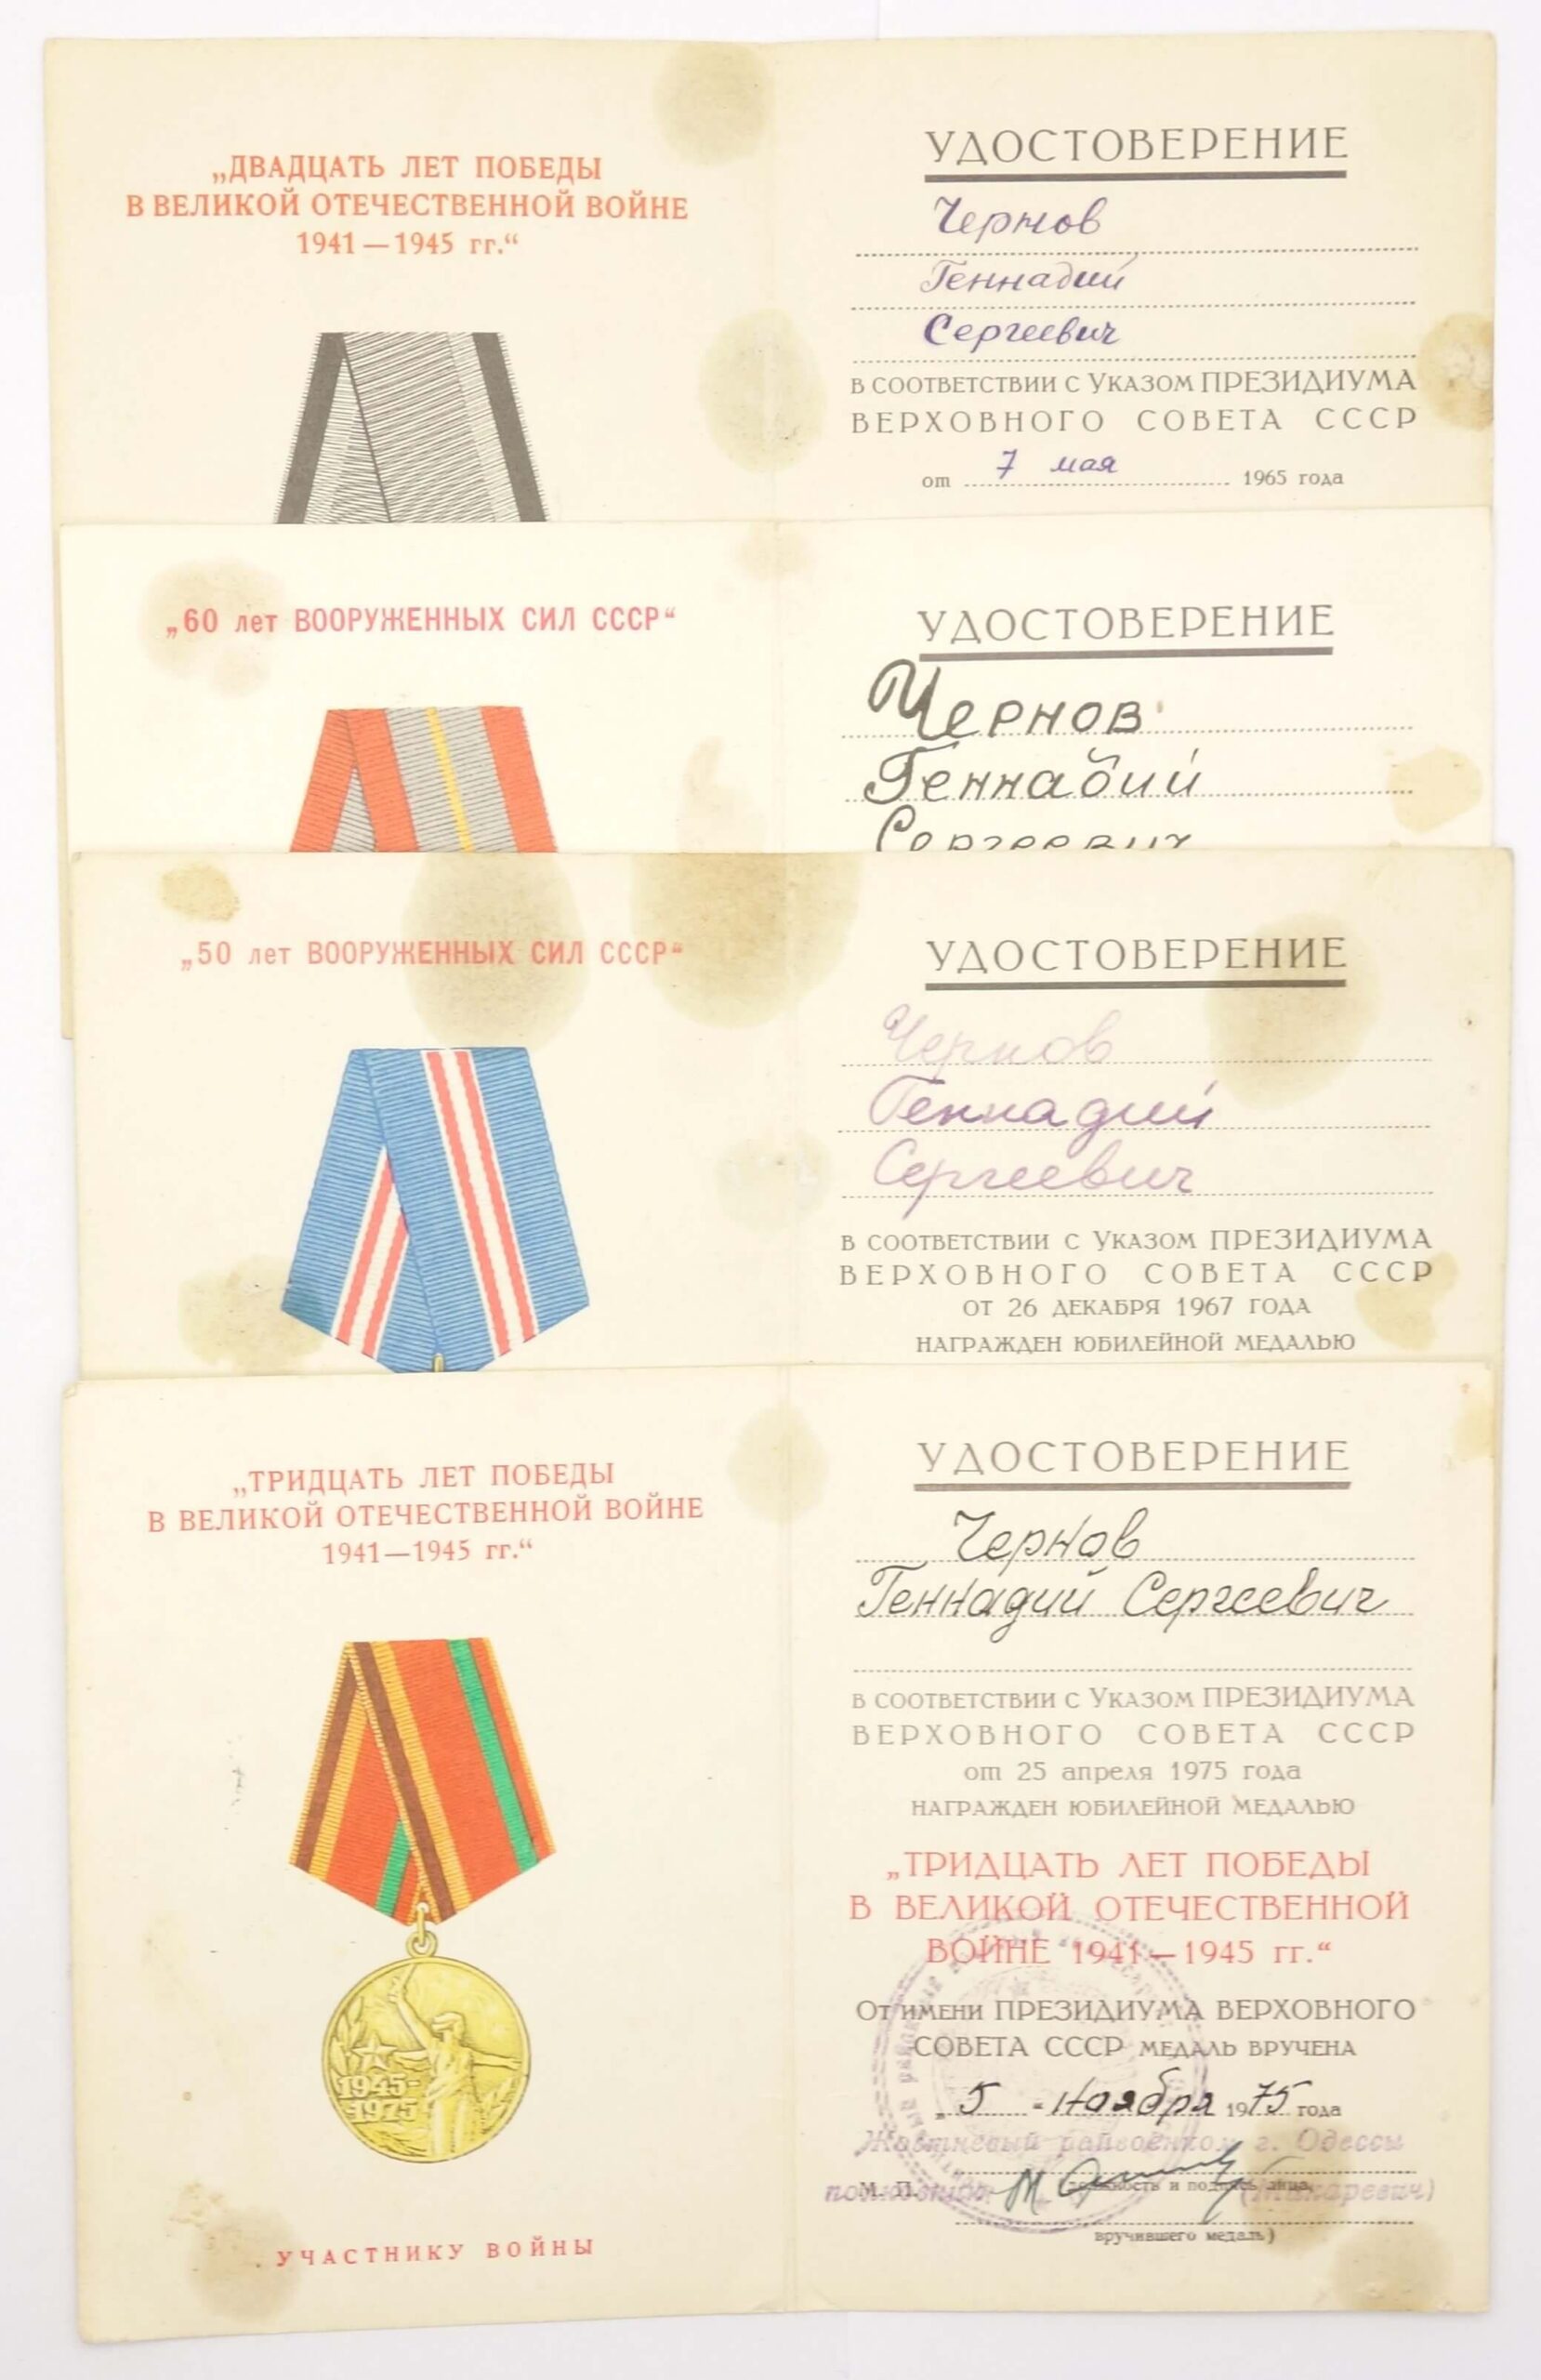 „ДВАДЦАТЬ ЛЕТ ПОБЕДЫ
В ВЕЛИКОЙ ОТЕЧЕСТВЕННОЙ ВОЙНЕ
1941 — 1945 гг.“
УДОСТОВЕРЕНИЕ
Чернов
Геннадий
Сергеевич
В СООТВЕТСТВИИ С УКАЗОМ ПРЕЗИДИУМА
ВЕРХОВНОГО СОВЕТА СССР
от 7 мая 1965 года
„60 лет ВООРУЖЕННЫХ СИЛ СССР“
УДОСТОВЕРЕНИЕ
Чернов
Геннадий
Сергеевич
„50 лет ВООРУЖЕННЫХ СИЛ СССР“
УДОСТОВЕРЕНИЕ
Чернов
Геннадий
Сергеевич
В СООТВЕТСТВИИ С УКАЗОМ ПРЕЗИДИУМА
ВЕРХОВНОГО СОВЕТА СССР
ОТ 26 ДЕКАБРЯ 1967 ГОДА
НАГРАЖДЕН ЮБИЛЕЙНОЙ МЕДАЛЬЮ
„ТРИДЦАТЬ ЛЕТ ПОБЕДЫ
В ВЕЛИКОЙ ОТЕЧЕСТВЕННОЙ ВОЙНЕ
1941—1945 гг.“
1945-
1975
УЧАСТНИКУ ВОЙНЫ
УДОСТОВЕРЕНИЕ
Чернов
Геннадий Сергеевич
В СООТВЕТСТВИИ С УКАЗОМ ПРЕЗИДИУМА
ВЕРХОВНОГО СОВЕТА СССР
от 25 апреля 1975 года
НАГРАЖДЕН ЮБИЛЕЙНОЙ МЕДАЛЬЮ
„ТРИДЦАТЬ ЛЕТ ПОБЕДЫ
В ВЕЛИКОЙ ОТЕЧЕСТВЕННОЙ
ВОЙНЕ 1941—1945 гг.“
ОТ ИМЕНИ ПРЕЗИДИУМА ВЕРХОВНОГО
СОВЕТА СССР МЕДАЛЬ ВРУЧЕНА
„5“ ноября 1975 года
Жовтневый райвоенком г. Одессы
М. П. должность и подпись лица,
полковник (Макаревич)
вручившего медаль)